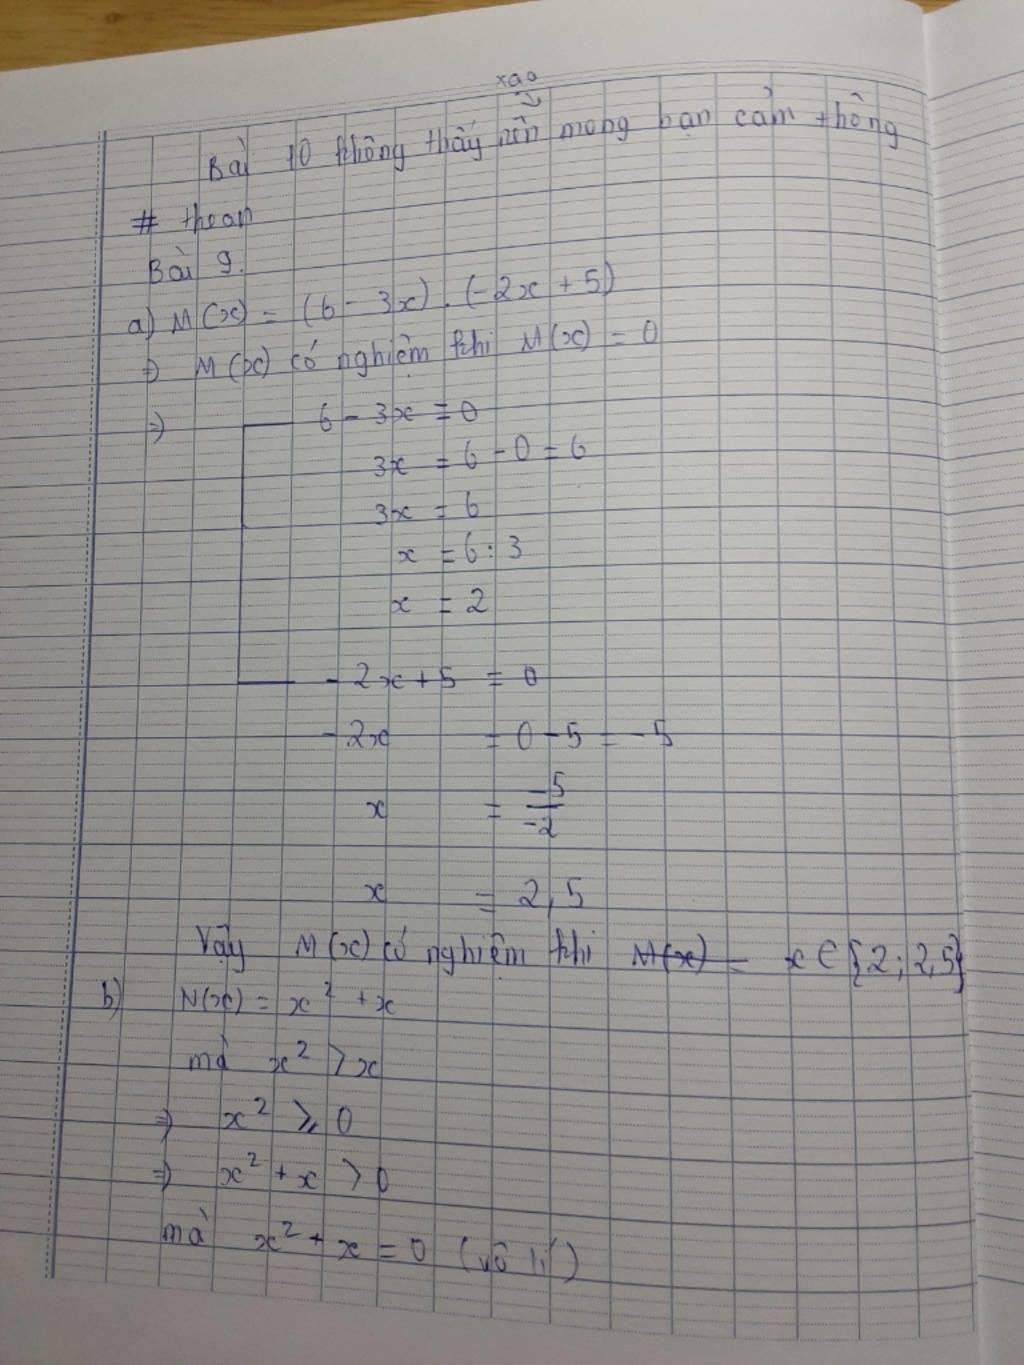 xao
Bài 10 không thấy nên mong bạn cảm thông
# thean
Bài 9.
a) M(x) = (6 - 3x) . (-2x + 5)
=> M(x) có nghiệm khi M(x) = 0
=> 6 - 3x = 0
3x = 6 - 0 = 6
3x = 6
x = 6 : 3
x = 2
- 2x + 5 = 0
- 2x = 0 - 5 = - 5
x = -5/-2
x = 2,5
Vậy M(x) có nghiệm khi M(x) = x ∈ {2; 2,5}
b) N(x) = x² + x
mà x² > x
=> x² ⩾ 0
=> x² + x > 0
mà x² + x = 0 (vô lí)